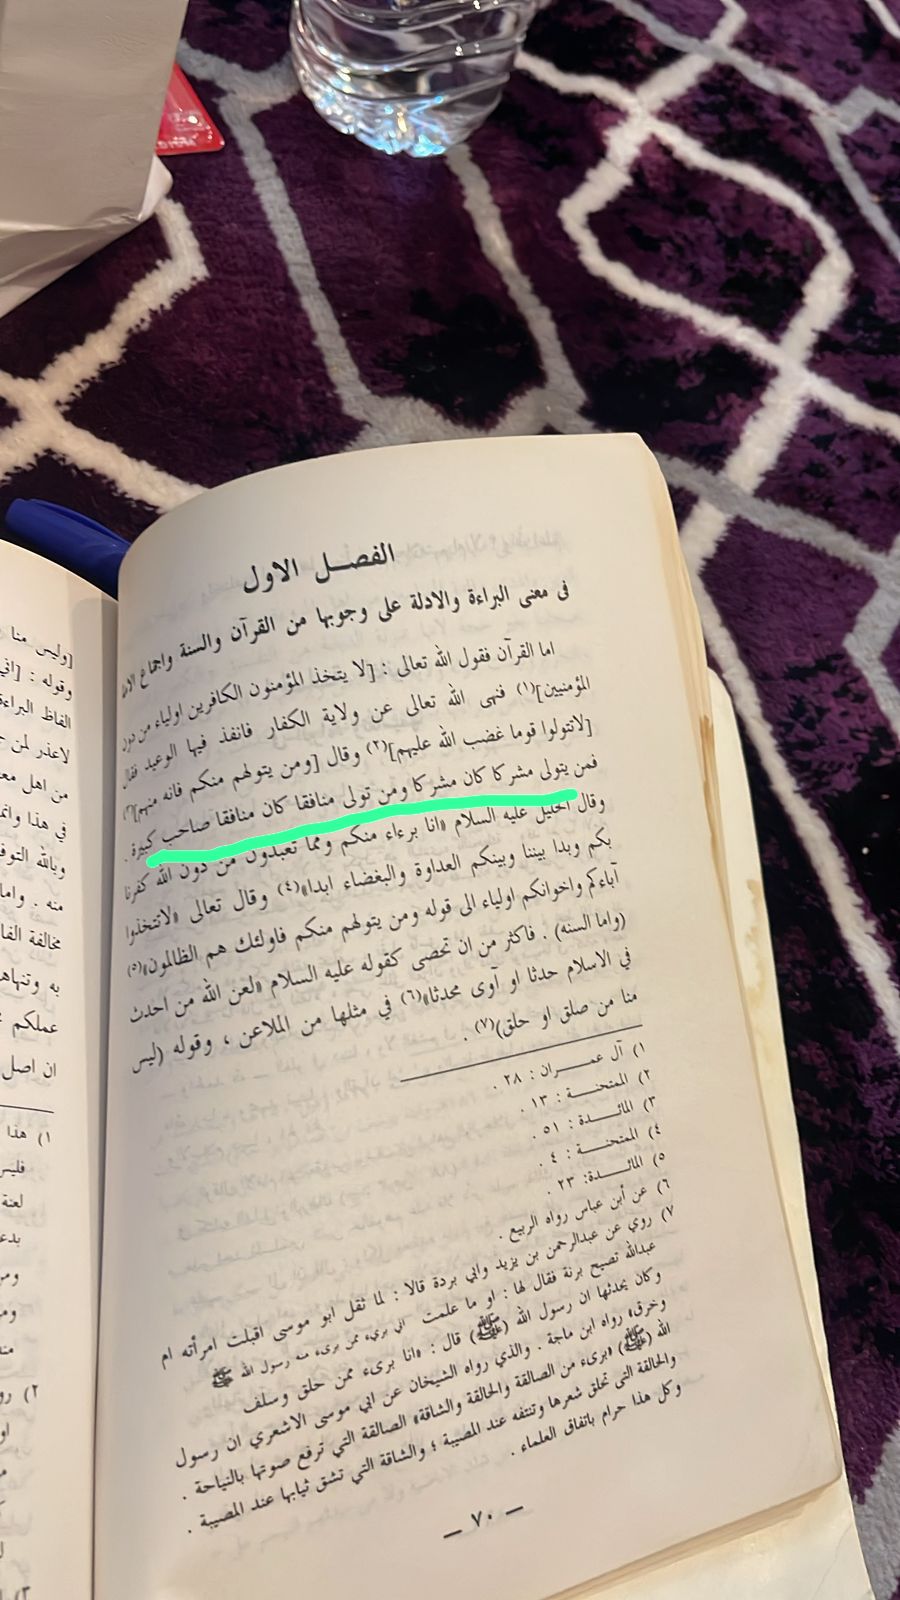 الفصل الاول
فى معنى البراءة والادلة على وجوبها من القرآن والسنة واجماع
اما القرآن فقول الله تعالى : [لا يتخذ المؤمنون الكافرين اولياء من دون
المؤمنيين](١) فنهى الله تعالى عن ولاية الكفار فانفذ فيها الوعيد فقال
[لاتتولوا قوما غضب الله عليهم](٢) وقال [ومن يتولهم منكم فانه منهم](٣)
فمن يتولى مشركا كان مشركا ومن تولى منافقا كان منافقا صاحب كبيرة .
وقال الخليل عليه السلام «انا برءاء منكم ومما تعبدون من دون الله كفرنا
بكم وبدا بيننا وبينكم العداوة والبغضاء ابدا»(٤) وقال تعالى «لاتتخذوا
آباءكم واخوانكم اولياء الى قوله ومن يتولهم منكم فاولئك هم الظالمون»(٥)
(واما السنه) . فاكثر من ان تحصى كقوله عليه السلام «لعن الله من احدث
في الاسلام حدثا او آوى محدثا»(٦) في مثلها من الملاعن ، وقوله (ليس
منا من صلق او حلق)(٧) .
١) آل عمران : ٢٨ .
٢) الممتحنة : ١٣ .
٣) المائدة : ٥١ .
٤) الممتحنة : ٤ .
٥) المائدة: ٢٣ .
٦) عن أبن عباس رواه الربيع .
٧) روي عن عبدالرحمن بن يزيد وابي بردة قالا : لما ثقل ابو موسى اقبلت امرأته ام
عبدالله تصيح برنة فقال لها : او ما علمت اني بريء ممن برىء منه رسول الله ﷺ
وكان يحدثها ان رسول الله (ﷺ) قال : «انا برىء ممن حلق وسلف
وخرق» رواه ابن ماجة . والذي رواه الشيخان عن ابي موسى الاشعري ان رسول
الله (ﷺ) «برىء من الصالقة والحالقة والشاقة» الصالقة التي ترفع صوتها بالنياحة .
والحالقة التى تحلق شعرها وتنتفه عند المصيبة ؛ والشاقة التي تشق ثيابها عند المصيبة .
وكل هذا حرام باتفاق العلماء .
– ٧٠ –
[وليس منا
وقوله :
الفاظ البراءة
لاعذر لمن
من اهل
في هذا
وبالله
منه . واما
مخالفة
به
عملكم
ان اصل
١) هذا
فليس
لعنة